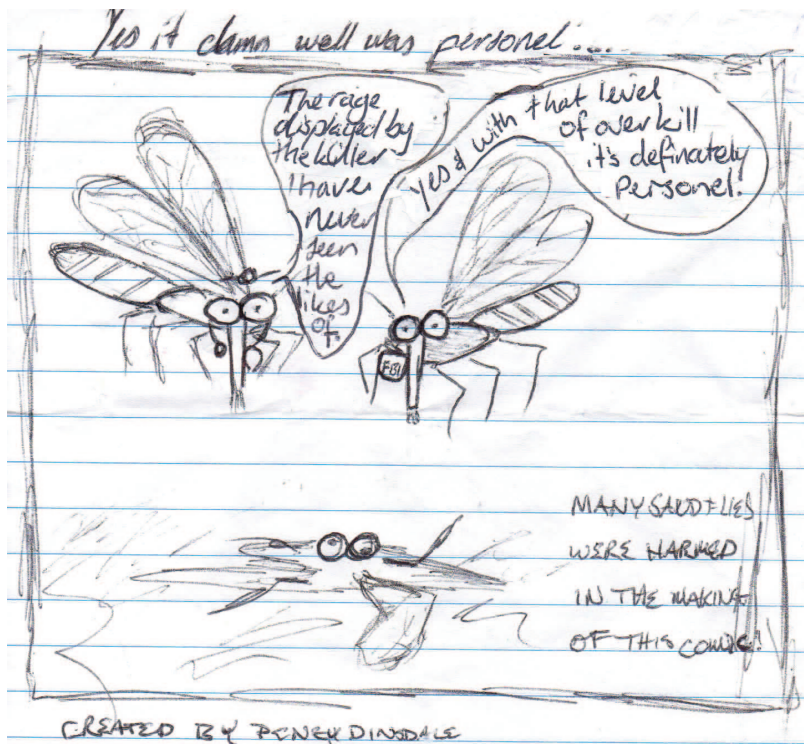 Yes it damn well was personel....
The rage
displaced by
the killer
I have
never
seen
the
likes
of.
Yes & with that level
of overkill
it's definately
Personel!
FBI
MANY SANDFLIES
WERE HARMED
IN THE MAKING
OF THIS COMIC!
CREATED BY PENEY DINSDALE